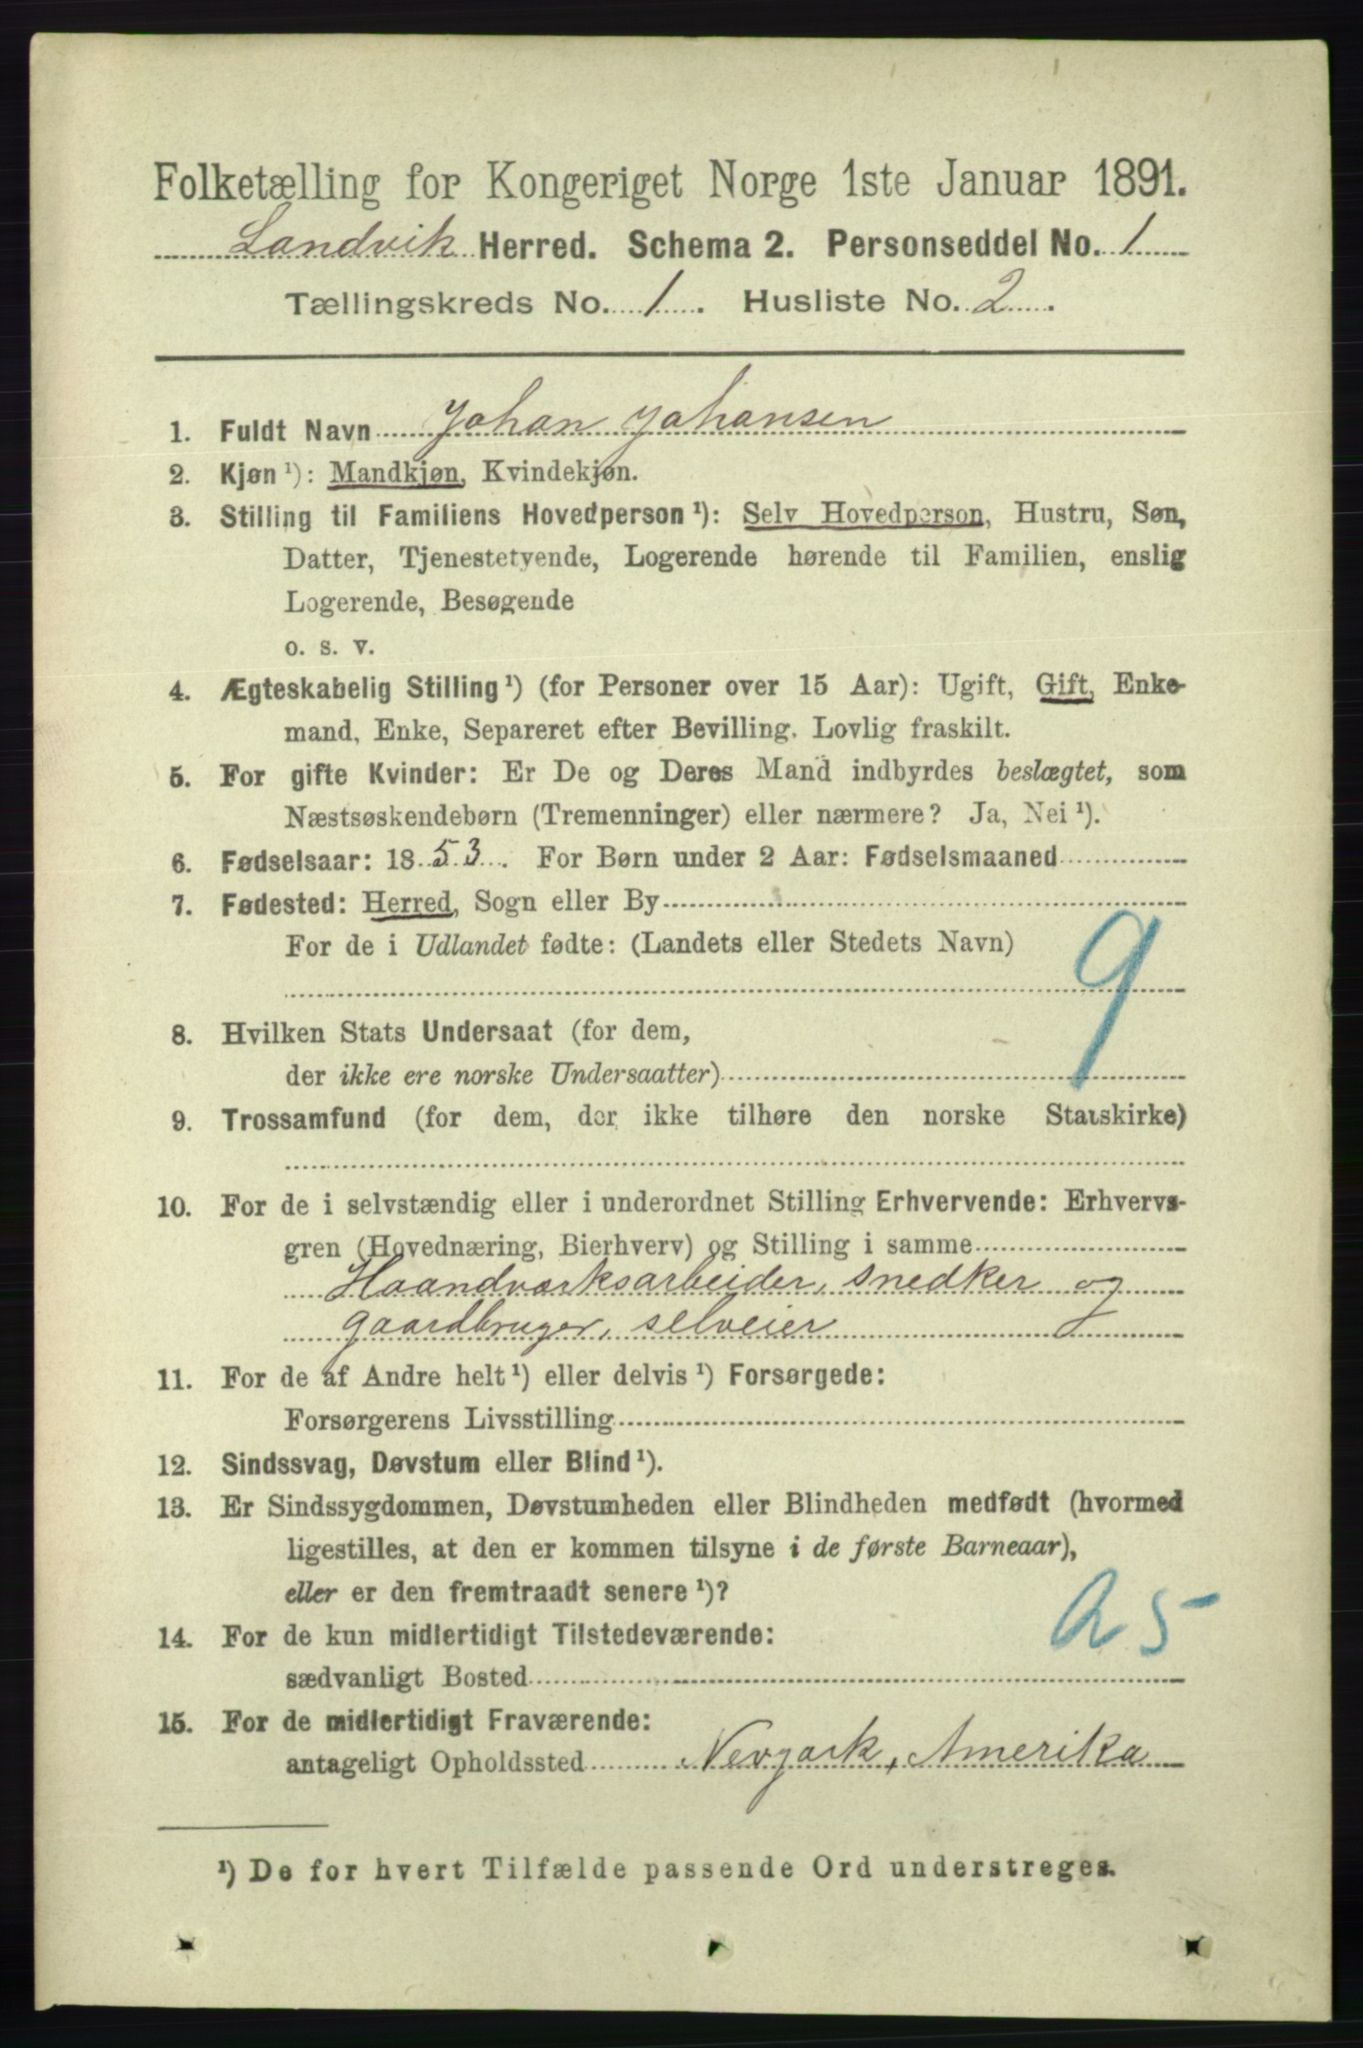 Folketælling for Kongeriget Norge 1ste Januar 1891.
Landvik Herred. Schema 2. Personseddel No. 1
Tællingskreds No. 1. Husliste No. 2.
1. Fuldt Navn Johan Johansen
2. Kjøn¹): Mandkjøn, Kvindekjøn.
3. Stilling til Familiens Hovedperson¹): Selv Hovedperson, Hustru, Søn,
Datter, Tjenestetyende, Logerende hørende til Familien, enslig
Logerende, Besøgende
o. s. v.
4. Ægteskabelig Stilling¹) (for Personer over 15 Aar): Ugift, Gift, Enke-
mand, Enke, Separeret efter Bevilling. Lovlig fraskilt.
5. For gifte Kvinder: Er De og Deres Mand indbyrdes beslægtet, som
Næstsøskendebørn (Tremenninger) eller nærmere? Ja, Nei¹).
6. Fødselsaar: 1853. For Børn under 2 Aar: Fødselsmaaned
7. Fødested: Herred, Sogn eller By
For de i Udlandet fødte: (Landets eller Stedets Navn)
9
8. Hvilken Stats Undersaat (for dem,
der ikke ere norske Undersaatter)
9. Trossamfund (for dem, der ikke tilhøre den norske Statskirke)
10. For de i selvstændig eller i underordnet Stilling Erhvervende: Erhvervs-
gren (Hovednæring, Bierhverv) og Stilling i samme
Haandværksarbeider, snedker og
gaardbruger, selveier
11. For de af Andre helt¹) eller delvis¹) Forsørgede:
Forsørgerens Livsstilling
12. Sindssvag, Døvstum eller Blind¹).
13. Er Sindssygdommen, Døvstumheden eller Blindheden medfødt (hvormed
ligestilles, at den er kommen tilsyne i de første Barneaar),
eller er den fremtraadt senere¹)?
a 5
14. For de kun midlertidigt Tilstedeværende:
sædvanligt Bosted
15. For de midlertidigt Fraværende:
antageligt Opholdssted Nevyork, Amerika
¹) De for hvert Tilfælde passende Ord understreges.